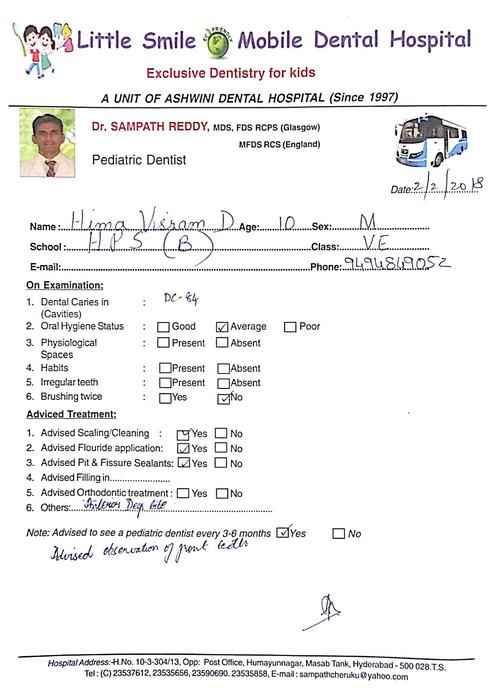 Little Smile Mobile Dental Hospital
Exclusive Dentistry for kids
A UNIT OF ASHWINI DENTAL HOSPITAL (Since 1997)
Dr. SAMPATH REDDY, MDS, FDS RCPS (Glasgow)
MFDS RCS (England)
Pediatric Dentist
Date: 2/2/2018
Name: Hima Vikram D Age: 10 Sex: M
School: HPS (B) Class: V E
E-mail: Phone: 9494849052
On Examination:
1. Dental Caries in : DC-84
(Cavities)
2. Oral Hygiene Status : Good Average Poor
3. Physiological : Present Absent
Spaces
4. Habits : Present Absent
5. Irregular teeth : Present Absent
6. Brushing twice : Yes No
Adviced Treatment:
1. Advised Scaling/Cleaning : Yes No
2. Advised Flouride application: Yes No
3. Advised Pit & Fissure Sealants: Yes No
4. Advised Filling in
5. Advised Orthodontic treatment : Yes No
6. Others: Anterior Deep bite
Note: Advised to see a pediatric dentist every 3-6 months Yes No
Advised observation of front teeth
Hospital Address:-H.No. 10-3-304/13, Opp: Post Office, Humayunnagar, Masab Tank, Hyderabad - 500 028.T.S.
Tel : (C) 23537612, 23535656, 23590690. 23535858, E-mail : sampathcheruku@yahoo.com